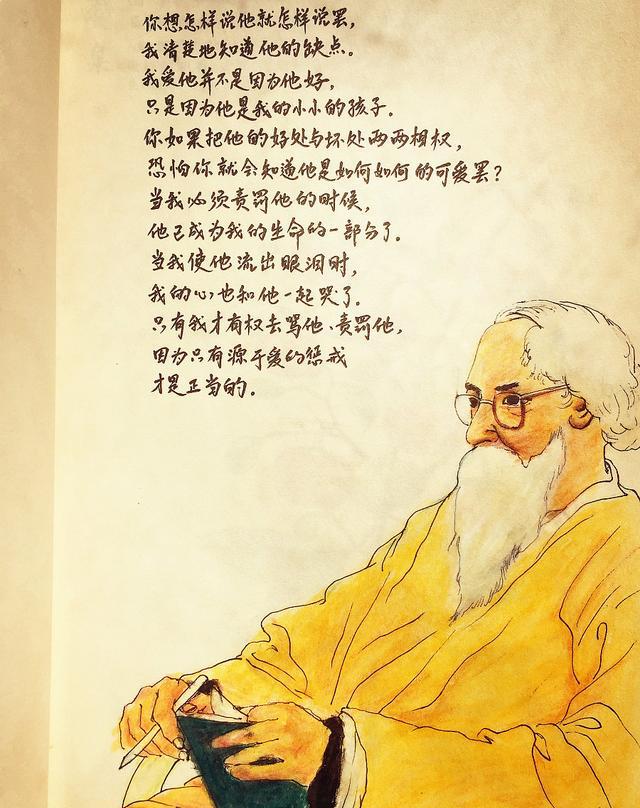 你想怎样说他就怎样说罢，
我清楚地知道他的缺点。
我爱他并不是因为他好，
只是因为他是我的小小的孩子。
你如果把他的好处与坏处两两相权，
恐怕你就会知道他是如何如何的可爱罢？
当我必须责罚他的时候，
他已成为我的生命的一部分了。
当我使他流出眼泪时，
我的心也和他一起哭了。
只有我才有权去骂他、责罚他，
因为只有源于爱的惩戒
才是正当的。